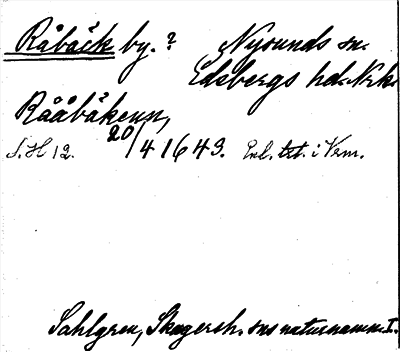 Råbäck by. ? Nysunds sn.
Edsbergs hd. Nrke
Rååbäkenn,
S. H 12. 20/4 1643. Enl. txt. i Verm.
Sahlgren, Skagersh. sns naturnamn. I.